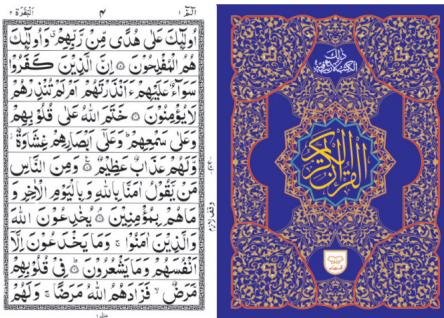 الٓمّٓ ١
٤
اَلْبَقَرَة ٢
اُولٰٓئِكَ عَلٰى هُدًى مِّنْ رَّبِّهِمْ ۗ وَاُولٰٓئِكَ
هُمُ الْمُفْلِحُوْنَ ۝ اِنَّ الَّذِيْنَ كَفَرُوْا
سَوَآءٌ عَلَيْهِمْ ءَاَنْذَرْتَهُمْ اَمْ لَمْ تُنْذِرْهُمْ
لَا يُؤْمِنُوْنَ ۝ خَتَمَ اللّٰهُ عَلٰى قُلُوْبِهِمْ
وَعَلٰى سَمْعِهِمْ ؕ وَعَلٰٓى اَبْصَارِهِمْ غِشَاوَةٌ ؗ
وَّلَهُمْ عَذَابٌ عَظِيْمٌ ۝ وَمِنَ النَّاسِ
مَنْ يَّقُوْلُ اٰمَنَّا بِاللّٰهِ وَبِالْيَوْمِ الْاٰخِرِ وَ
مَا هُمْ بِمُؤْمِنِيْنَ ۝ يُخٰدِعُوْنَ اللّٰهَ
وَالَّذِيْنَ اٰمَنُوْا ۚ وَمَا يَخْدَعُوْنَ اِلَّآ
اَنْفُسَهُمْ وَمَا يَشْعُرُوْنَ ۝ فِيْ قُلُوْبِهِمْ
مَّرَضٌ ۙ فَزَادَهُمُ اللّٰهُ مَرَضًا ۚ وَلَهُمْ
وقف لازم
منزل ١
القرآن الكريم